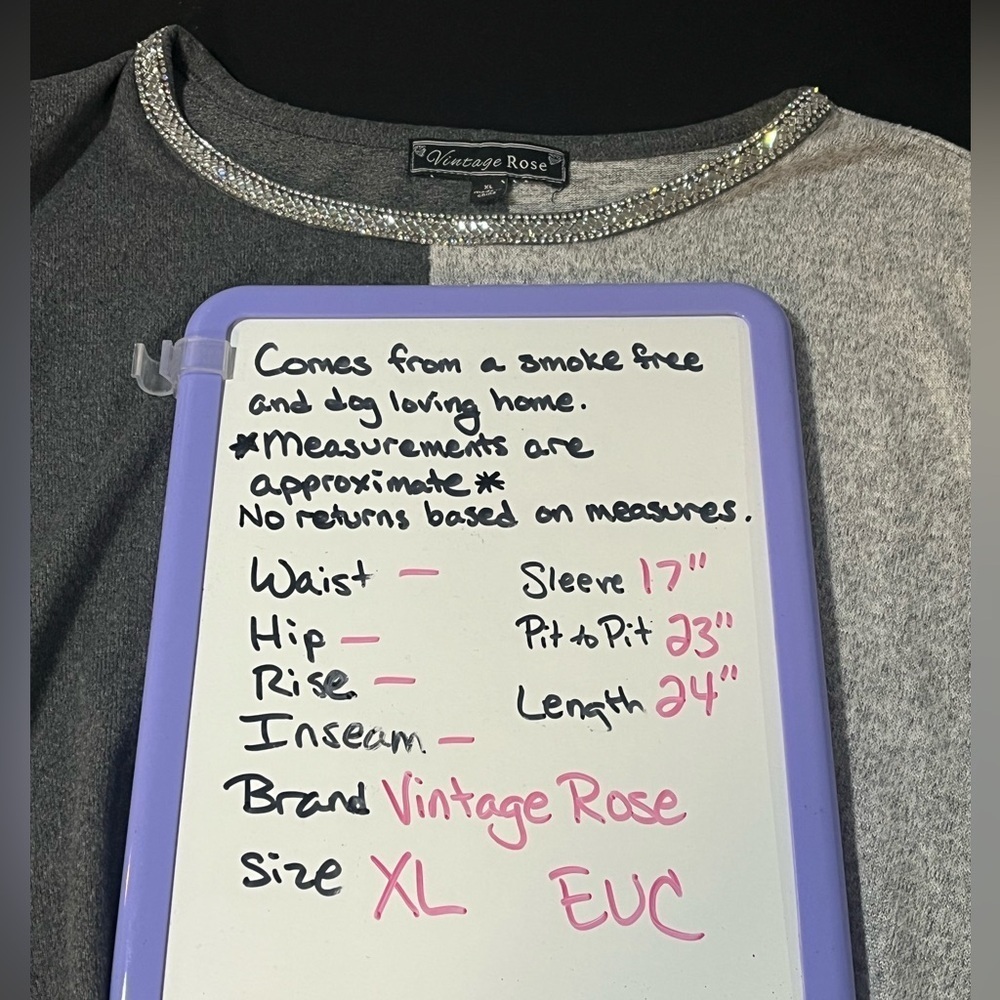 Vintage Rose
XL
Comes from a smoke free
and dog loving home.
*Measurements are
approximate*
No returns based on measures.
Waist -
Hip -
Rise -
Inseam -
Sleeve 17"
Pit to Pit 23"
Length 24"
Brand Vintage Rose
Size XL
EUC